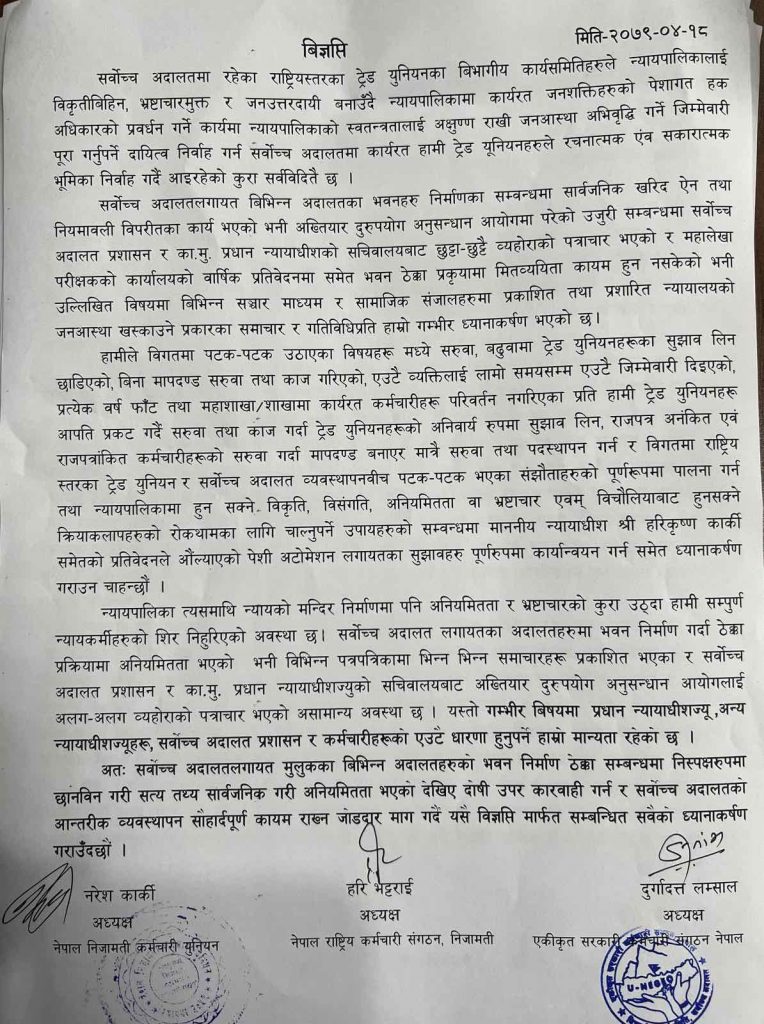 मिति-२०७९-०४-१८
बिज्ञप्ति
सर्वोच्च अदालतमा रहेका राष्ट्रियस्तरका ट्रेड युनियनका बिभागीय कार्यसमितिहरुले न्यायपालिकालाई
विकृतीविहिन, भ्रष्टाचारमुक्त र जनउत्तरदायी बनाउँदै न्यायपालिकामा कार्यरत जनशक्तिहरुको पेशागत हक
अधिकारको प्रवर्धन गर्ने कार्यमा न्यायपालिकाको स्वतन्त्रतालाई अक्षुण्ण राखी जनआस्था अभिवृद्धि गर्ने जिम्मेवारी
पूरा गर्नुपर्ने दायित्व निर्वाह गर्न सर्वोच्च अदालतमा कार्यरत हामी ट्रेड यूनियनहरुले रचनात्मक एंव सकारात्मक
भूमिका निर्वाह गर्दै आइरहेको कुरा सर्वविदितै छ ।
सर्वोच्च अदालतलगायत विभिन्न अदालतका भवनहरु निर्माणका सम्वन्धमा सार्वजनिक खरिद ऐन तथा
नियमावली विपरीतका कार्य भएको भनी अख्तियार दुरुपयोग अनुसन्धान आयोगमा परेको उजुरी सम्वन्धमा सर्वोच्च
अदालत प्रशासन र का.मु. प्रधान न्यायाधीशको सचिवालयबाट छुट्टा-छुट्टै व्यहोराको पत्राचार भएको र महालेखा
परीक्षकको कार्यालयको वार्षिक प्रतिवेदनमा समेत भवन ठेक्का प्रकृयामा मितव्ययिता कायम हुन नसकेको भनी
उल्लिखित विषयमा बिभिन्न सञ्चार माध्यम र सामाजिक संजालहरुमा प्रकाशित तथा प्रशारित न्यायालयको
जनआस्था खस्काउने प्रकारका समाचार र गतिविधिप्रति हाम्रो गम्भीर ध्यानाकर्षण भएको छ।
हामीले विगतमा पटक-पटक उठाएका विषयहरु मध्ये सरुवा, बढुवामा ट्रेड युनियनहरूका सुझाव लिन
छाडिएको, बिना मापदण्ड सरुवा तथा काज गरिएको, एउटै व्यक्तिलाई लामो समयसम्म एउटै जिम्मेवारी दिइएको,
प्रत्येक वर्ष फाँट तथा महाशाखा/शाखामा कार्यरत कर्मचारीहरू परिवर्तन नगरिएका प्रति हामी ट्रेड युनियनहरू
आपति प्रकट गर्दै सरुवा तथा काज गर्दा ट्रेड युनियनहरूको अनिवार्य रुपमा सुझाव लिन, राजपत्र अनंकित एवं
राजपत्रांकित कर्मचारीहरूको सरुवा गर्दा मापदण्ड बनाएर मात्रै सरुवा तथा पदस्थापन गर्न र विगतमा राष्ट्रिय
स्तरका ट्रेड युनियन र सर्वोच्च अदालत व्यवस्थापनवीच पटक-पटक भएका संझौताहरुको पूर्णरूपमा पालना गर्न
तथा न्यायपालिकामा हुन सक्ने विकृति, विसंगति, अनियमितता वा भ्रष्टाचार एवम् विचौलियाबाट हुनसक्ने
क्रियाकलापहरुको रोकथामका लागि चाल्नुपर्ने उपायहरुको सम्वन्धमा माननीय न्यायाधीश श्री हरिकृष्ण कार्की
समेतको प्रतिवेदनले औंल्याएको पेशी अटोमेशन लगायतका सुझावहरु पूर्णरुपमा कार्यान्वयन गर्न समेत ध्यानाकर्षण
गराउन चाहन्छौं ।
न्यायपालिका त्यसमाथि न्यायको मन्दिर निर्माणमा पनि अनियमितता र भ्रष्टाचारको कुरा उठ्दा हामी सम्पुर्ण
न्यायकर्मीहरुको शिर निहुरिएको अवस्था छ। सर्वोच्च अदालत लगायतका अदालतहरुमा भवन निर्माण गर्दा ठेक्का
प्रक्रियामा अनियमितता भएको भनी विभिन्न पत्रपत्रिकामा भिन्न भिन्न समाचारहरू प्रकाशित भएका र सर्वोच्च
अदालत प्रशासन र का.मु. प्रधान न्यायाधीशज्युको सचिवालयबाट अख्तियार दुरुपयोग अनुसन्धान आयोगलाई
अलग-अलग व्यहोराको पत्राचार भएको असामान्य अवस्था छ । यस्तो गम्भीर बिषयमा प्रधान न्यायाधीशज्यू ,अन्य
न्यायाधीशज्यूहरू, सर्वोच्च अदालत प्रशासन र कर्मचारीहरूको एउटै धारणा हुनुपर्ने हाम्रो मान्यता रहेको छ ।
अतः सर्वोच्च अदालतलगायत मुलुकका बिभिन्न अदालतहरुको भवन निर्माण ठेक्का सम्वन्धमा निस्पक्षरुपमा
छानविन गरी सत्य तथ्य सार्वजनिक गरी अनियमितता भएको देखिए दोषी उपर कारवाही गर्न र सर्वोच्च अदालतको
आन्तरीक व्यवस्थापन सौहार्दपूर्ण कायम राख्न जोडदार माग गर्दै यसै विज्ञप्ति मार्फत सम्बन्धित सवैको ध्यानाकर्षण
गराउँदछौं ।
नरेश कार्की हरि भट्टराई दुर्गादत्त लम्साल
अध्यक्ष अध्यक्ष अध्यक्ष
नेपाल निजामती कर्मचारी युनियन नेपाल राष्ट्रिय कर्मचारी संगठन, निजामती एकीकृत सरकारी कर्मचारी संगठन नेपाल